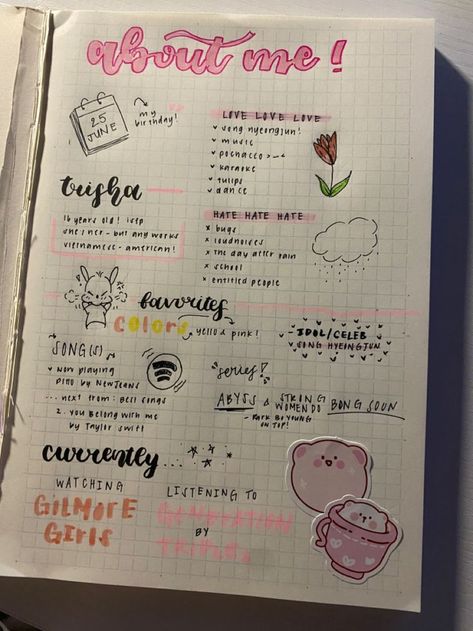 about me!
25
JUNE
my
birthday!
trisha
16 years old! isfp
she/her - but any works
vietnamese-american!
LOVE LOVE LOVE
song hyeongjun!
music
pochacco >-<
karaoke
tulips
dance
HATE HATE HATE
x bugs
x loud noises
x the day after rain
x school
x entitled people
favorites
colors
yellow & pink!
IDOL/CELEB
SONG HYEONGJUN
SONG(S)
now playing
DITTO by NewJeans
... next from: Best songs
2. you belong with me
by Taylor Swift
series!
ABYSS & STRONG WOMEN DO BONG SOON
- PARK BO YOUNG
ON TOP!
currently...
WATCHING
GILMORE
GIRLS
LISTENING TO
GENERATION
BY
TRIPLES